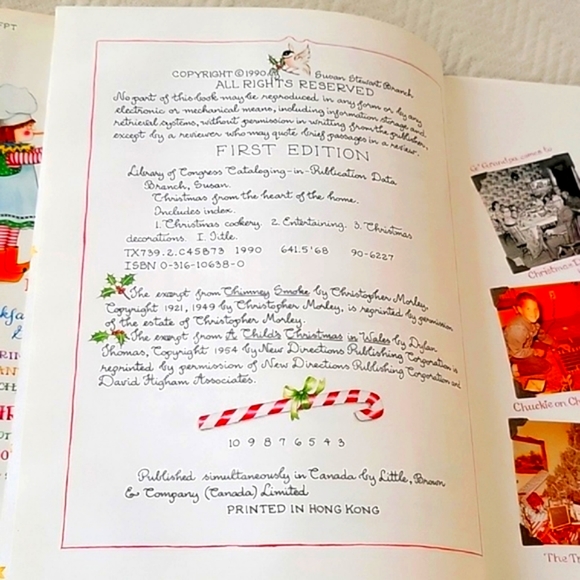 COPYRIGHT © 1990 by Susan Stewart Branch
ALL RIGHTS RESERVED
No part of this book may be reproduced in any form or by any
electronic or mechanical means, including information storage and
retrieval systems, without permission in writing from the publisher,
except by a reviewer who may quote brief passages in a review.
FIRST EDITION
Library of Congress Cataloging-in-Publication Data
Branch, Susan.
Christmas from the heart of the home.
Includes index.
1. Christmas cookery. 2. Entertaining. 3. Christmas
decorations. I. Title.
TX739.2.C45B73 1990 641.5'68 90-6227
ISBN 0-316-10638-0
The exerpt from Chimney Smoke by Christopher Morley,
Copyright 1921, 1949 by Christopher Morley, is reprinted by permission
of the estate of Christopher Morley.
The exerpt from A Child's Christmas in Wales by Dylan
Thomas, Copyright 1954 by New Directions Publishing Corporation is
reprinted by permission of New Directions Publishing Corporation and
David Higham Associates.
10 9 8 7 6 5 4 3
Published simultaneously in Canada by Little, Brown
& Company (Canada) Limited
PRINTED IN HONG KONG
Grandpa comes to
Christmas D
Chuckie on Ch
The Tr